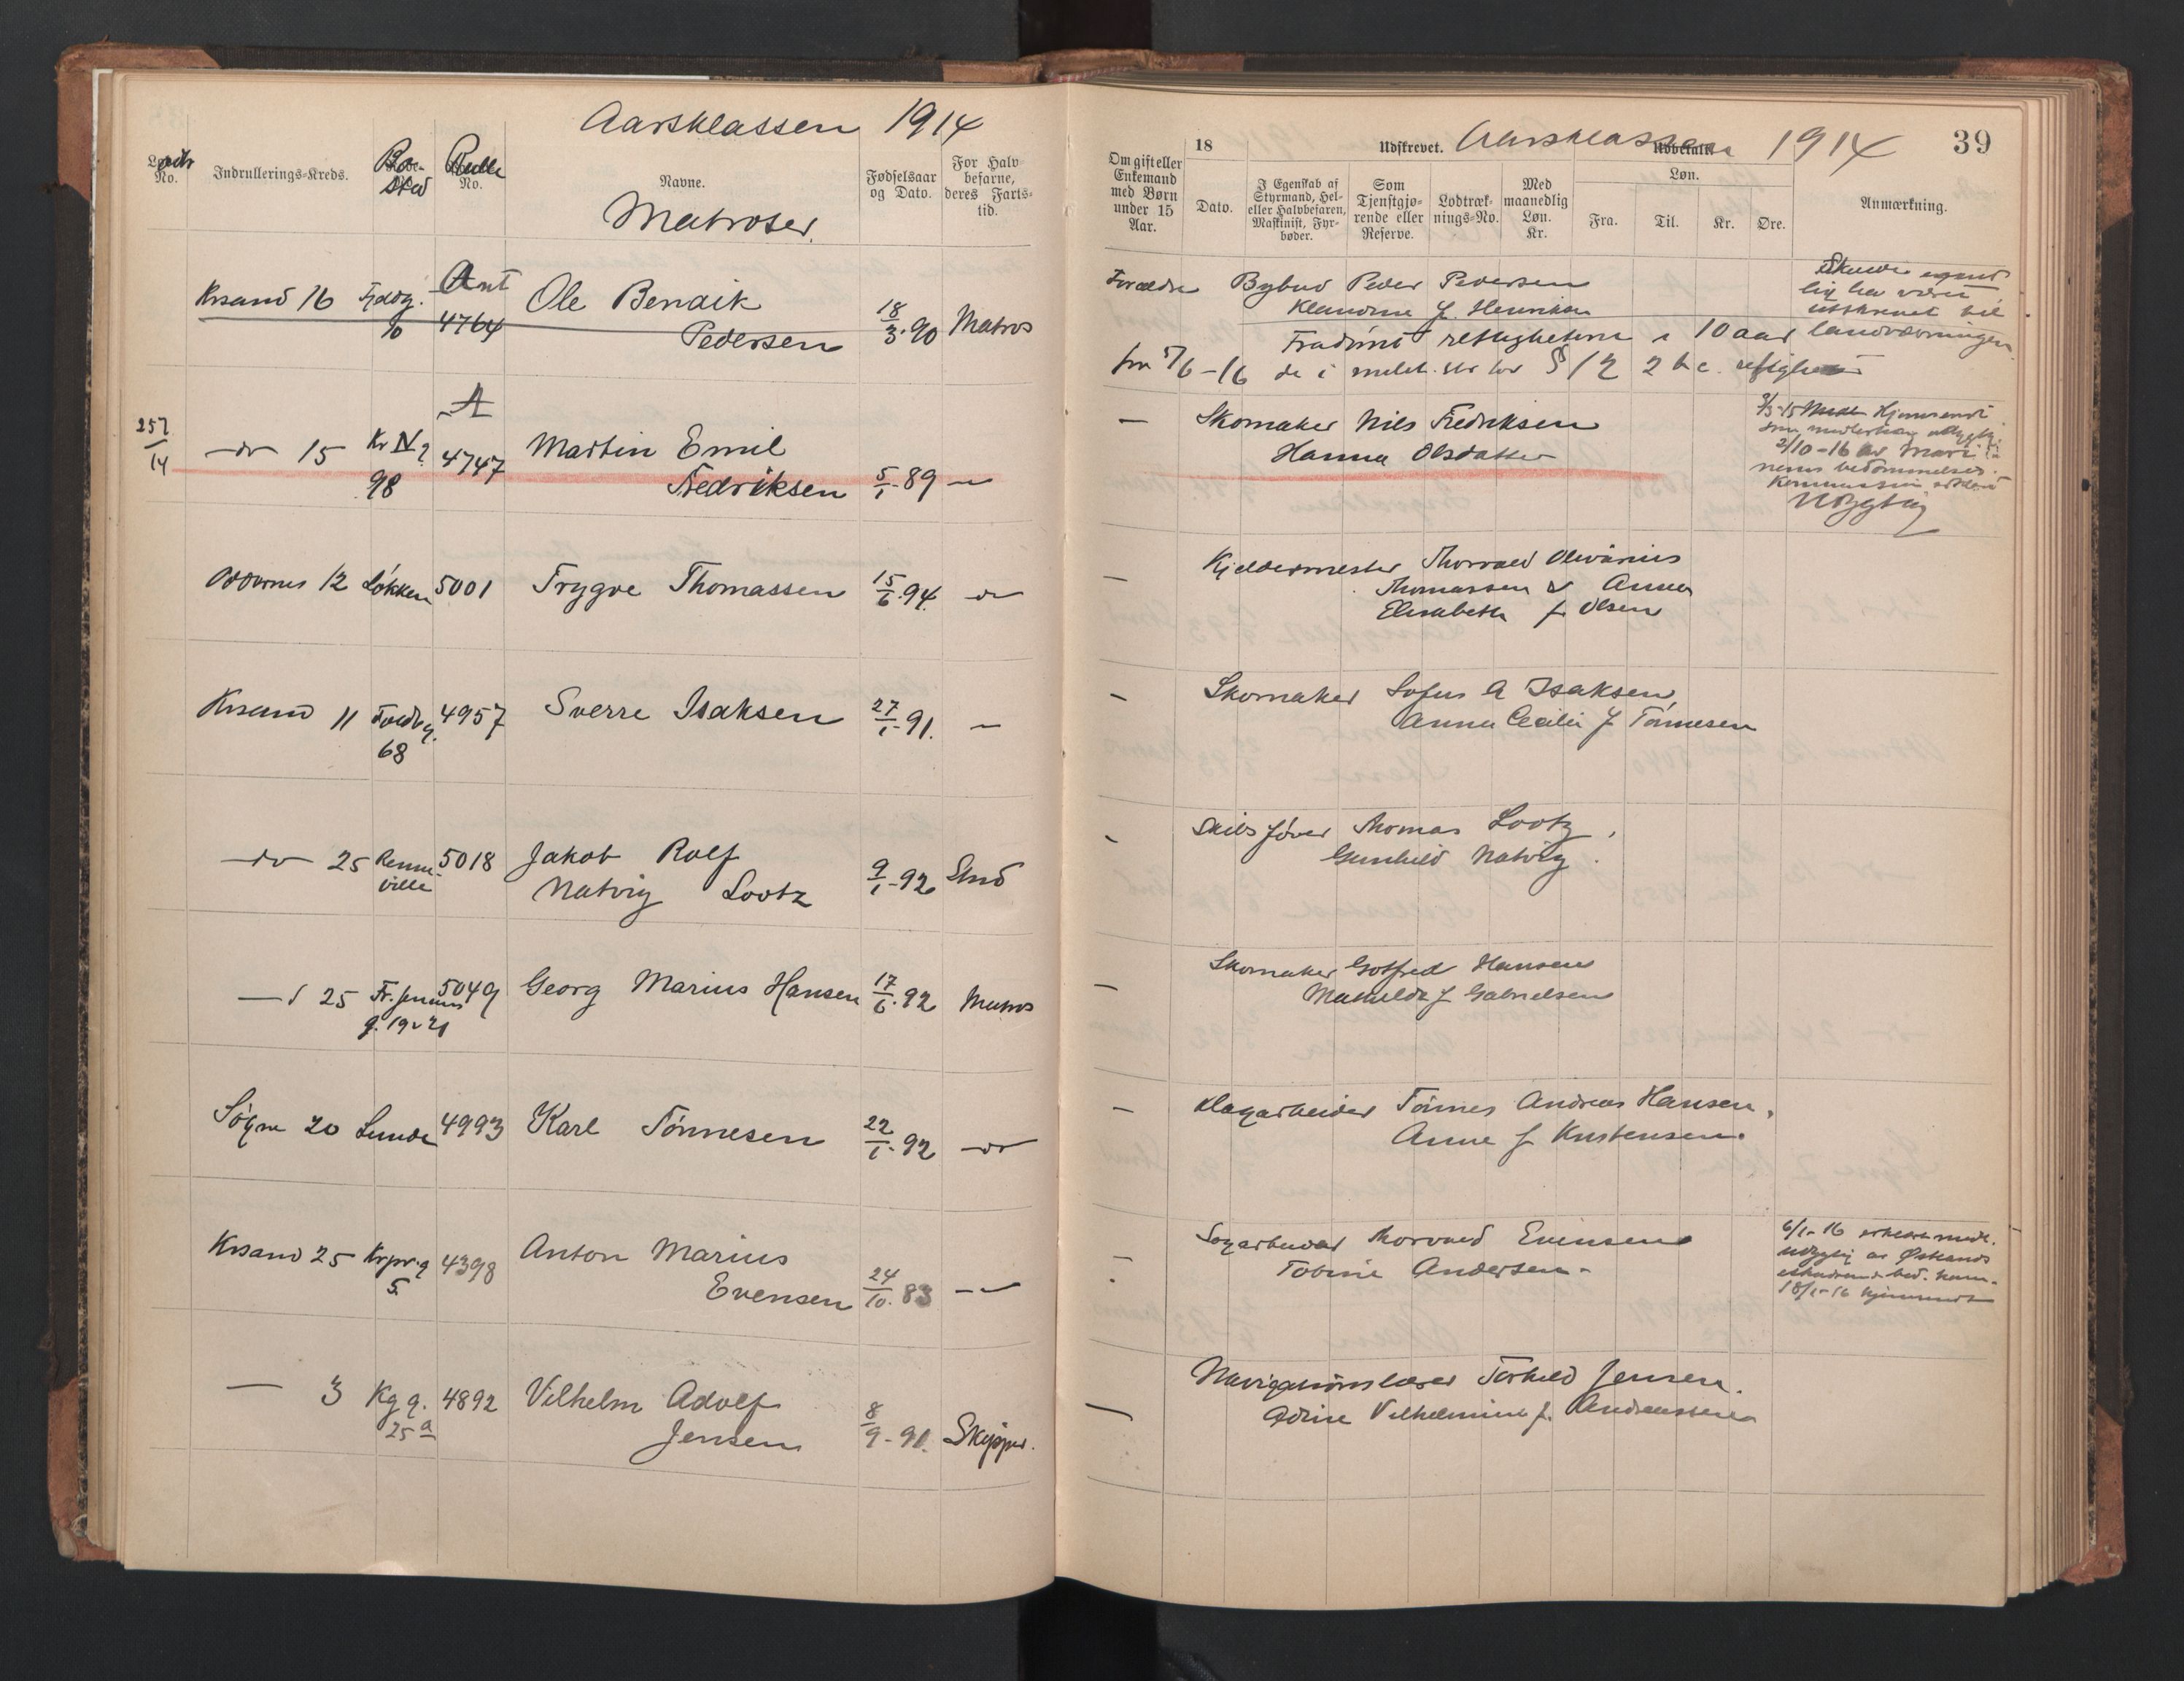 Aarsklassen 1914
No.
Indrullerings-Kreds.
Bo-
sted
Rulle
No.
Navne.
Matroser.
Fødselsaar
og Dato.
For Halv-
befarne,
deres Farts-
tid.
Krsand 16
10
Ant
4764
Ole Bendik
Pedersen
18/3-90
Matros
257/14
-do- 15
98
A
4747
Martin Emil
Fredriksen
5/1-89
-"-
Oddernes 12
Løkken
5001
Trygve Thomassen
15/6-94
do
Krsand 11
68
4957
Sverre Isaksen
27/1-91.
-
-do- 25
5018
Jakob Rolf
Natvig Lootz
9/1-92
Stud
-d 25
g. 19 v 21
5049
Georg Marius Hansen
17/6-92
Matros
Søgne 20
Lunde
4993
Karl Tønnesen
22/1-92
-do-
Krsand 25
Krpr. g
5.
4398
Anton Marius
Evensen
24/10-83
-"-
- 3
Kg g.
25 a
4892
Vilhelm Adolf
Jensen
8/9-91.
Skipper.
39
18
Udskrevet.
Aarsklassen 1914
Udbetalt
Om gift eller
Enkemand
med Børn
under 15
Aar.
Dato.
I Egenskab af
Styrmand, Hel-
eller Halvbefaren,
Maskinist, Fyr-
bøder.
Som
Tjenstgjø-
rende eller
Reserve.
Lodtræk-
nings-No.
Med
maanedlig
Løn.
Kr.
Løn.
Fra.
Til.
Kr.
Øre.
Anmærkning.
Forældre
Bybud Peder Pedersen
Klaudine f. Henriksen
Skulde egent
lig ha været
utskrevet til
landværningen
Fradømt rettigheterne i 10 aar
fra 5/6-16
§ 12 2
-
Skomaker Nils Fredriksen
Hanna Olsdatter
Hjemsendt
2/10-16 av Mari
nens bedømmelses
Kommission
Udygtig
-
Kjeldermester Thorvald Olivarius
Thomassen & Anna
Elisabeth f Olsen
-
Skomaker Sofus A Isaksen,
Anna Cecilie f Tønnesen
-
Skibsfører Thomas Lootz,
Gunhild Natvig.
-
Skomaker Gotfred Hansen
Mathilde f Gabrielsen
-
Tønnes Andreas Hansen,
Anne f Kristensen.
-
Thorvald Evensen
Tobine Andersen-
6/1-16
udygtig av
18/1-16 hjemsendt
-
Navigationslærer Torkild Jensen.
Vilhelmine f. Andreassen